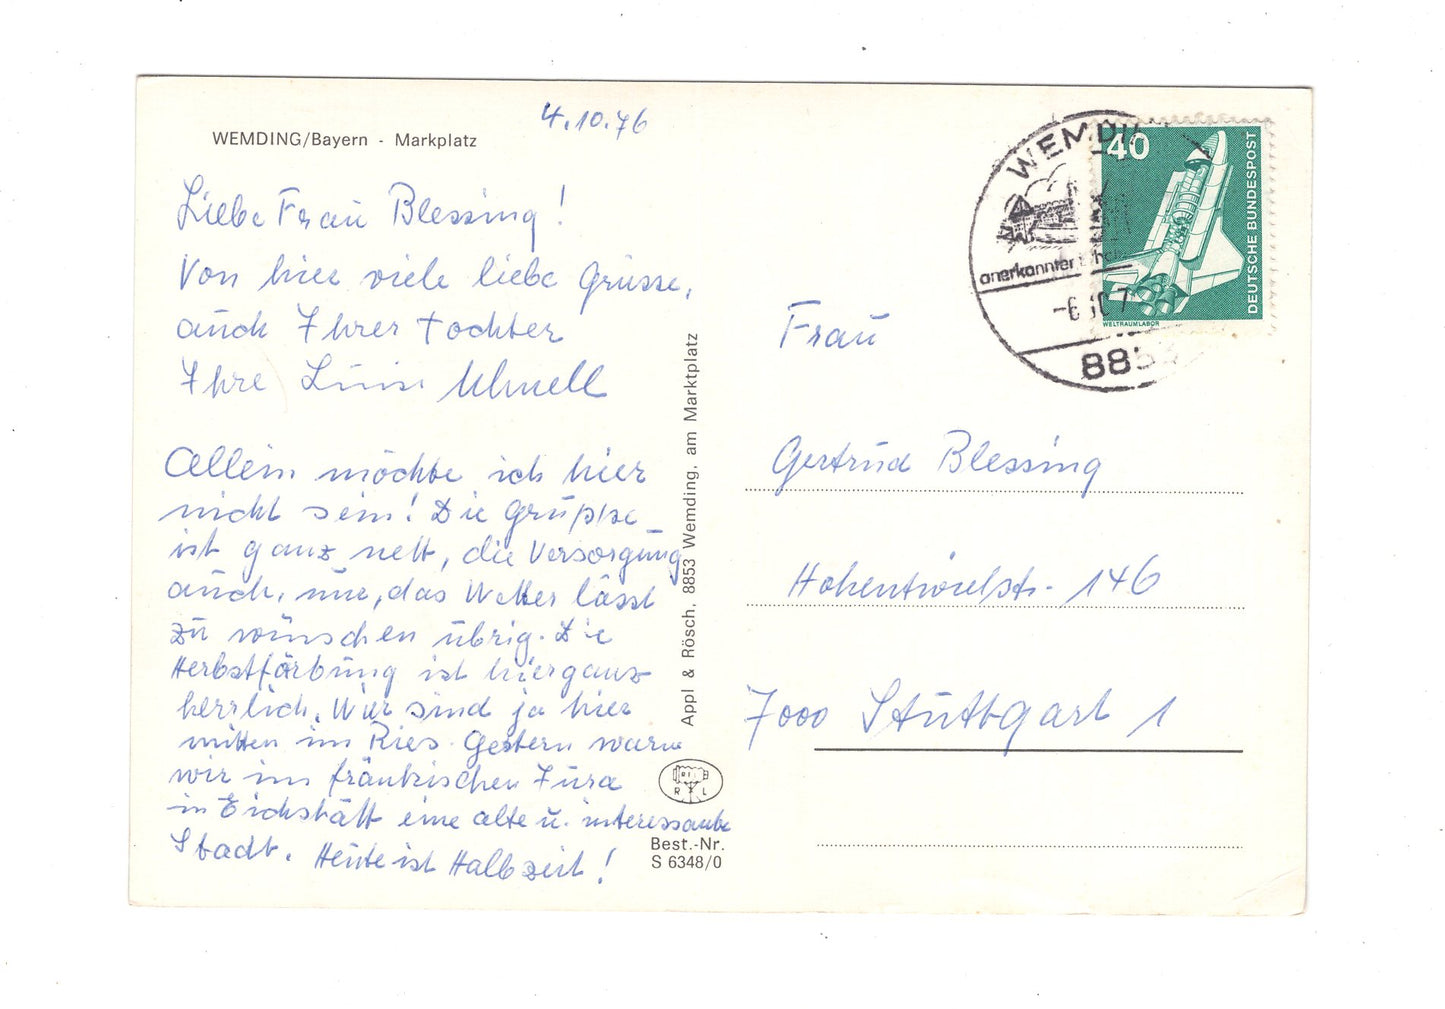 WEMDING/Bayern - Markplatz
4.10.76
Liebe Frau Blessing!
Von hier viele liebe Grüsse,
auch Ihrer Tochter
Ihre
Allein möchte ich hier
nicht sein! Die Gruppe
ist ganz nett, die Versorgung
auch, nur, das Wetter lässt
zu wünschen übrig. Die
Herbstfärbung ist hier ganz
herrlich. Wir sind ja hier
mitten im Ries. Gestern waren
wir im fränkischen Jura
in Eichstätt eine alte u. interessante
Stadt. Heute ist Halbzeit!
Appl & Rösch, 8853 Wemding, am Marktplatz
Best.-Nr.
S 6348/0
WEMDI
anerkannter Erho
-6.10.7
885
40
DEUTSCHE BUNDESPOST
WELTRAUMLABOR
Frau
Gertrud Blessing
Hohentwielstr. 146
7000 Stuttgart 1